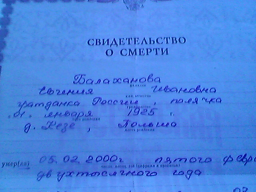 СВИДЕТЕЛЬСТВО
О СМЕРТИ
Балаханова
Евгения Ивановна
гражданка России, полячка
01. января 1925,
д. Кезе, Польша
умер(ла) 05.02.2000г. пятого февр
двухтысячного года